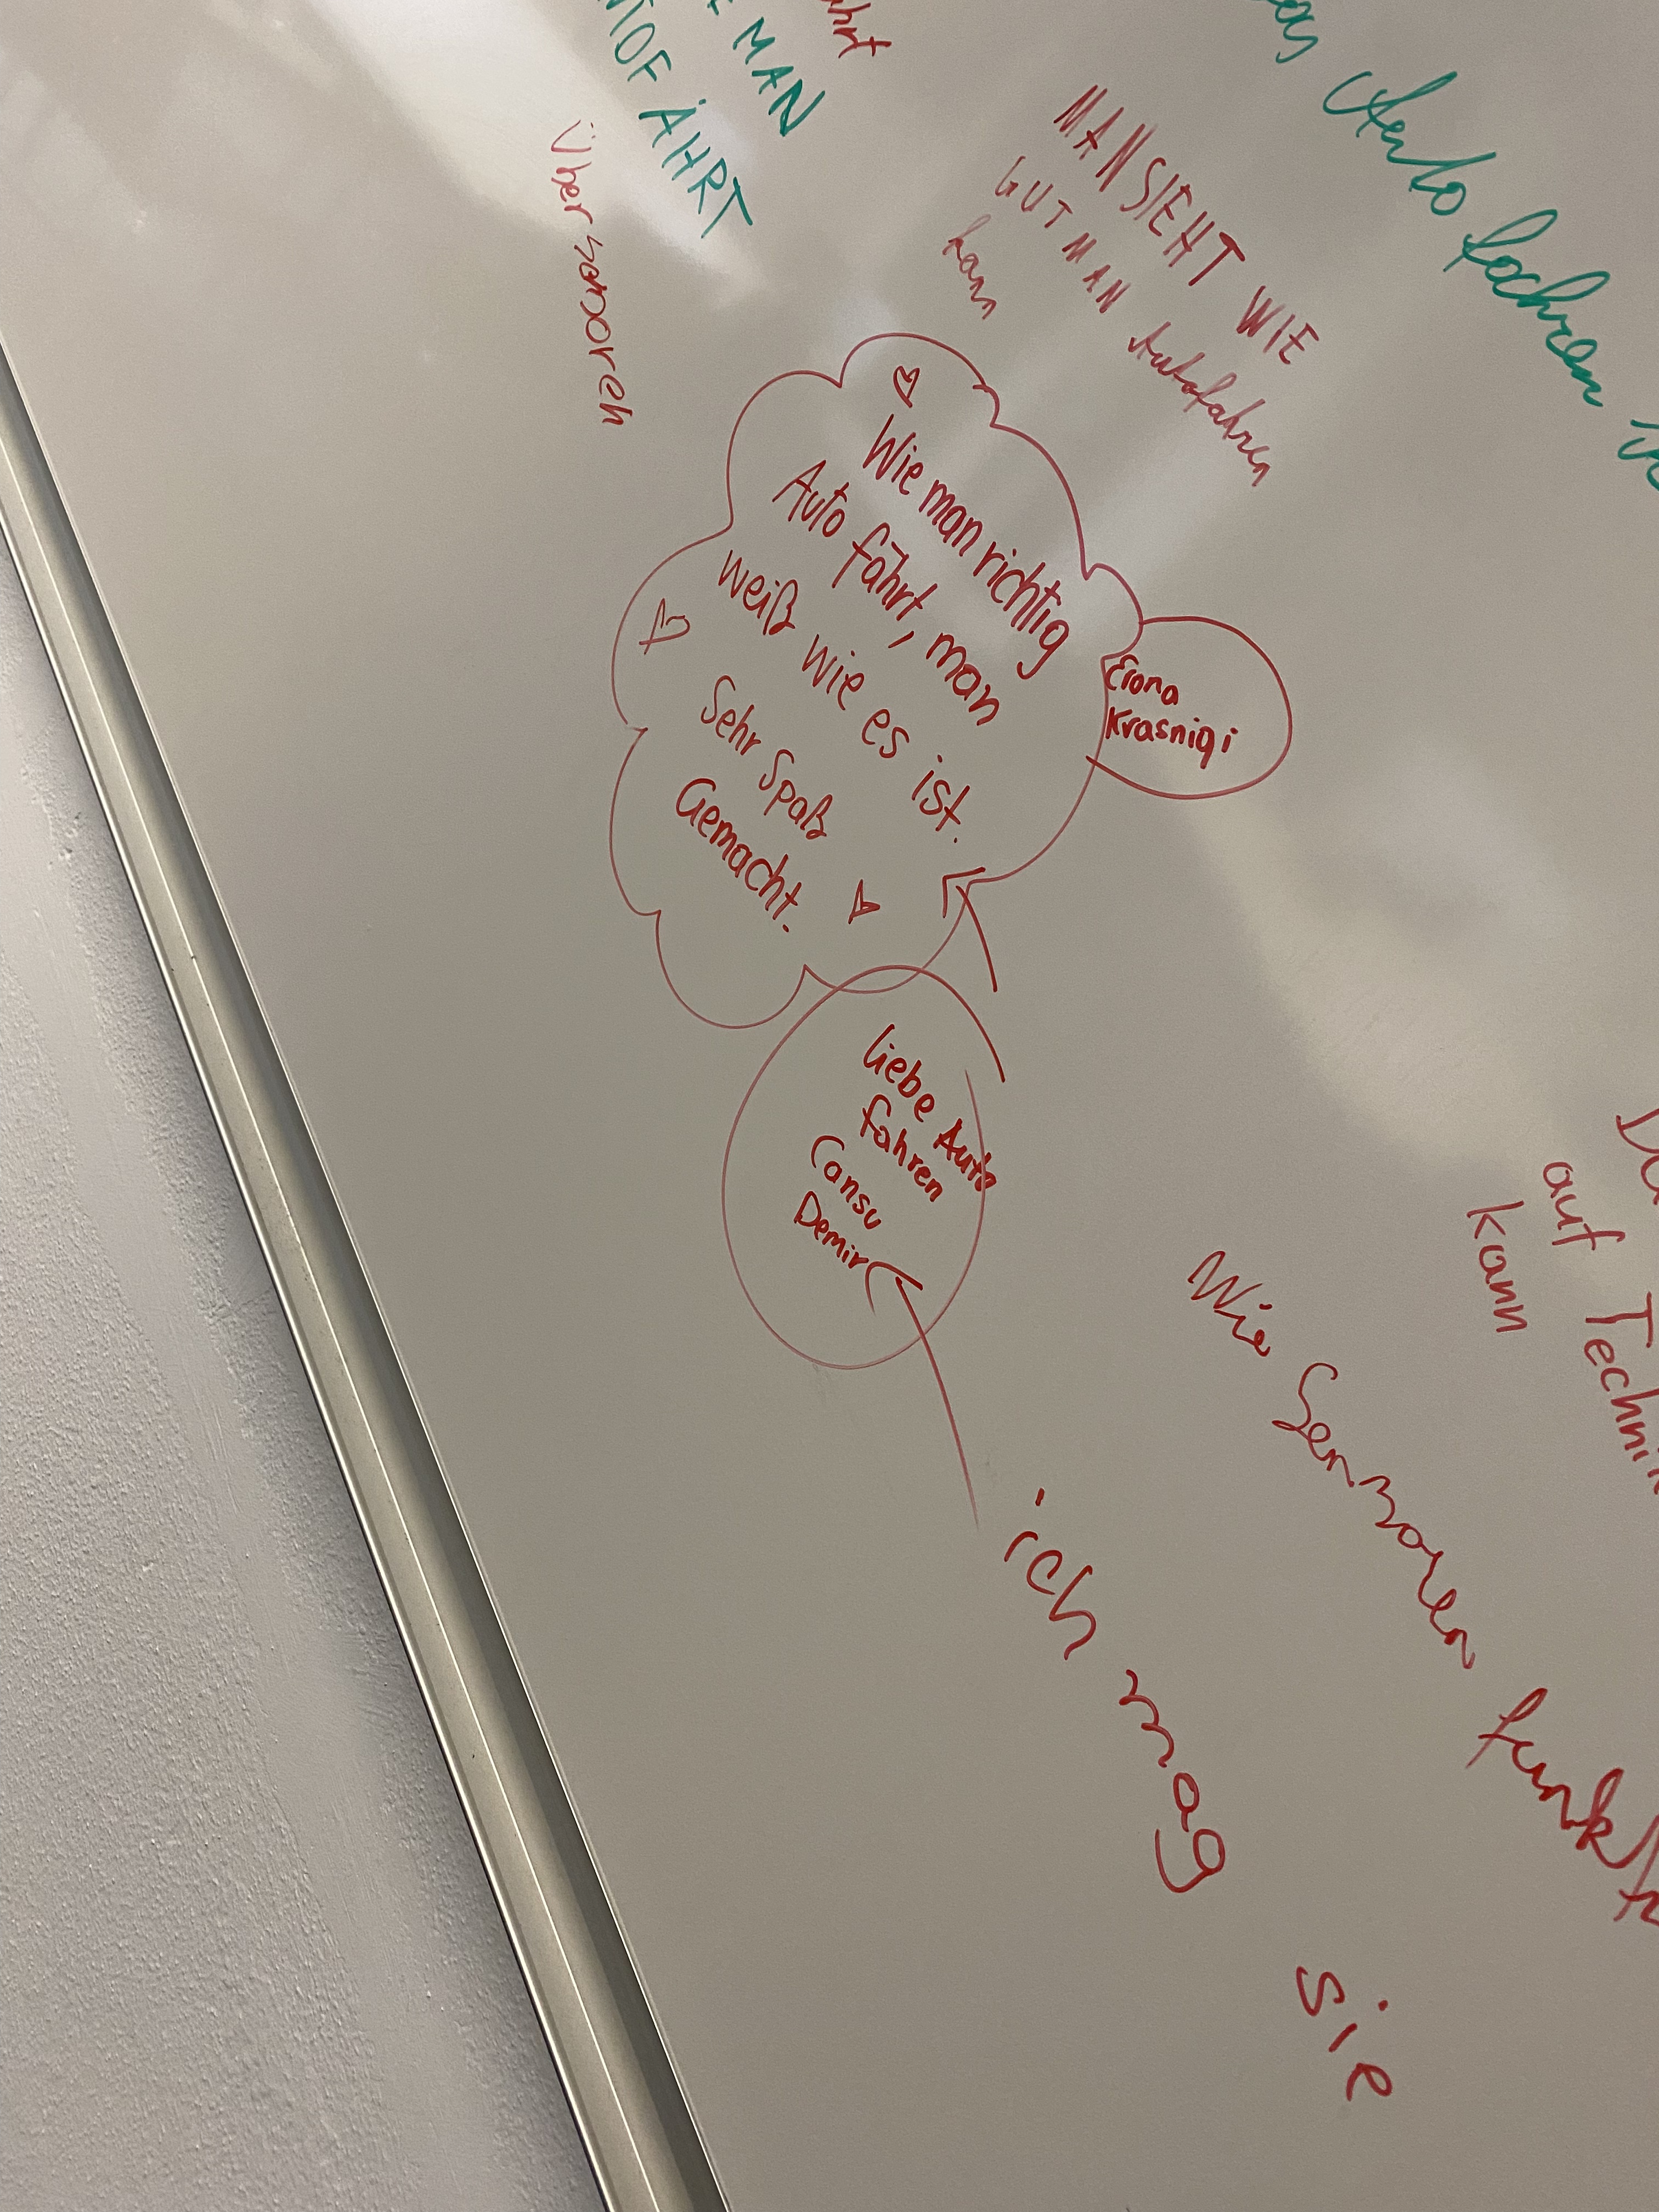 MAN
ÄHRT
ährt
Auto fahren
MAN SIEHT WIE
GUT MAN Autofahren
kann
Wie man richtig
Auto fährt, man
weiß wie es ist.
Sehr Spaß
Gemacht.
Erona
Krasniqi
liebe Auto
fahren
Cansu
Demir
auf Techni
kann
Wie Sensoren funkt
ich mag sie